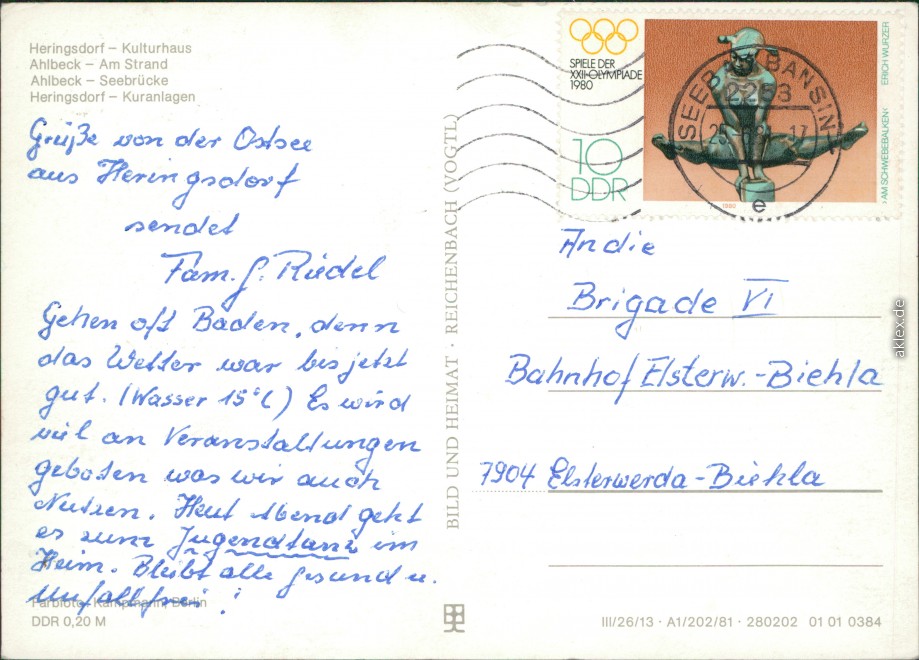 Heringsdorf – Kulturhaus
Ahlbeck – Am Strand
Ahlbeck – Seebrücke
Heringsdorf – Kuranlagen
Grüße von der Ostsee
aus Heringsdorf
sendet
Fam. G. Riedel
Gehen oft Baden, denn
das Wetter war bis jetzt
gut. (Wasser 15°C) Es wird
viel an Veranstaltungen
geboten was wir auch
Nutzen. Heut Abend geht
es zum Jugendtanz im
Heim. Bleibt alle gesund u.
Unfallfrei!
Farbfotos: Kampmann, Berlin
DDR 0,20 M
BILD UND HEIMAT · REICHENBACH (VOGTL)
SPIELE DER
XXII·OLYMPIADE
1980
10
DDR
ERICH WURZER
›AM SCHWEBEBALKEN‹
1980
SEEBAD BANSIN
2253
e
An die
Brigade VI
Bahnhof Elsterw.-Biehla
7904 Elsterwerda-Biehla
III/26/13 · A1/202/81 · 280202 01 01 0384
aklex.de